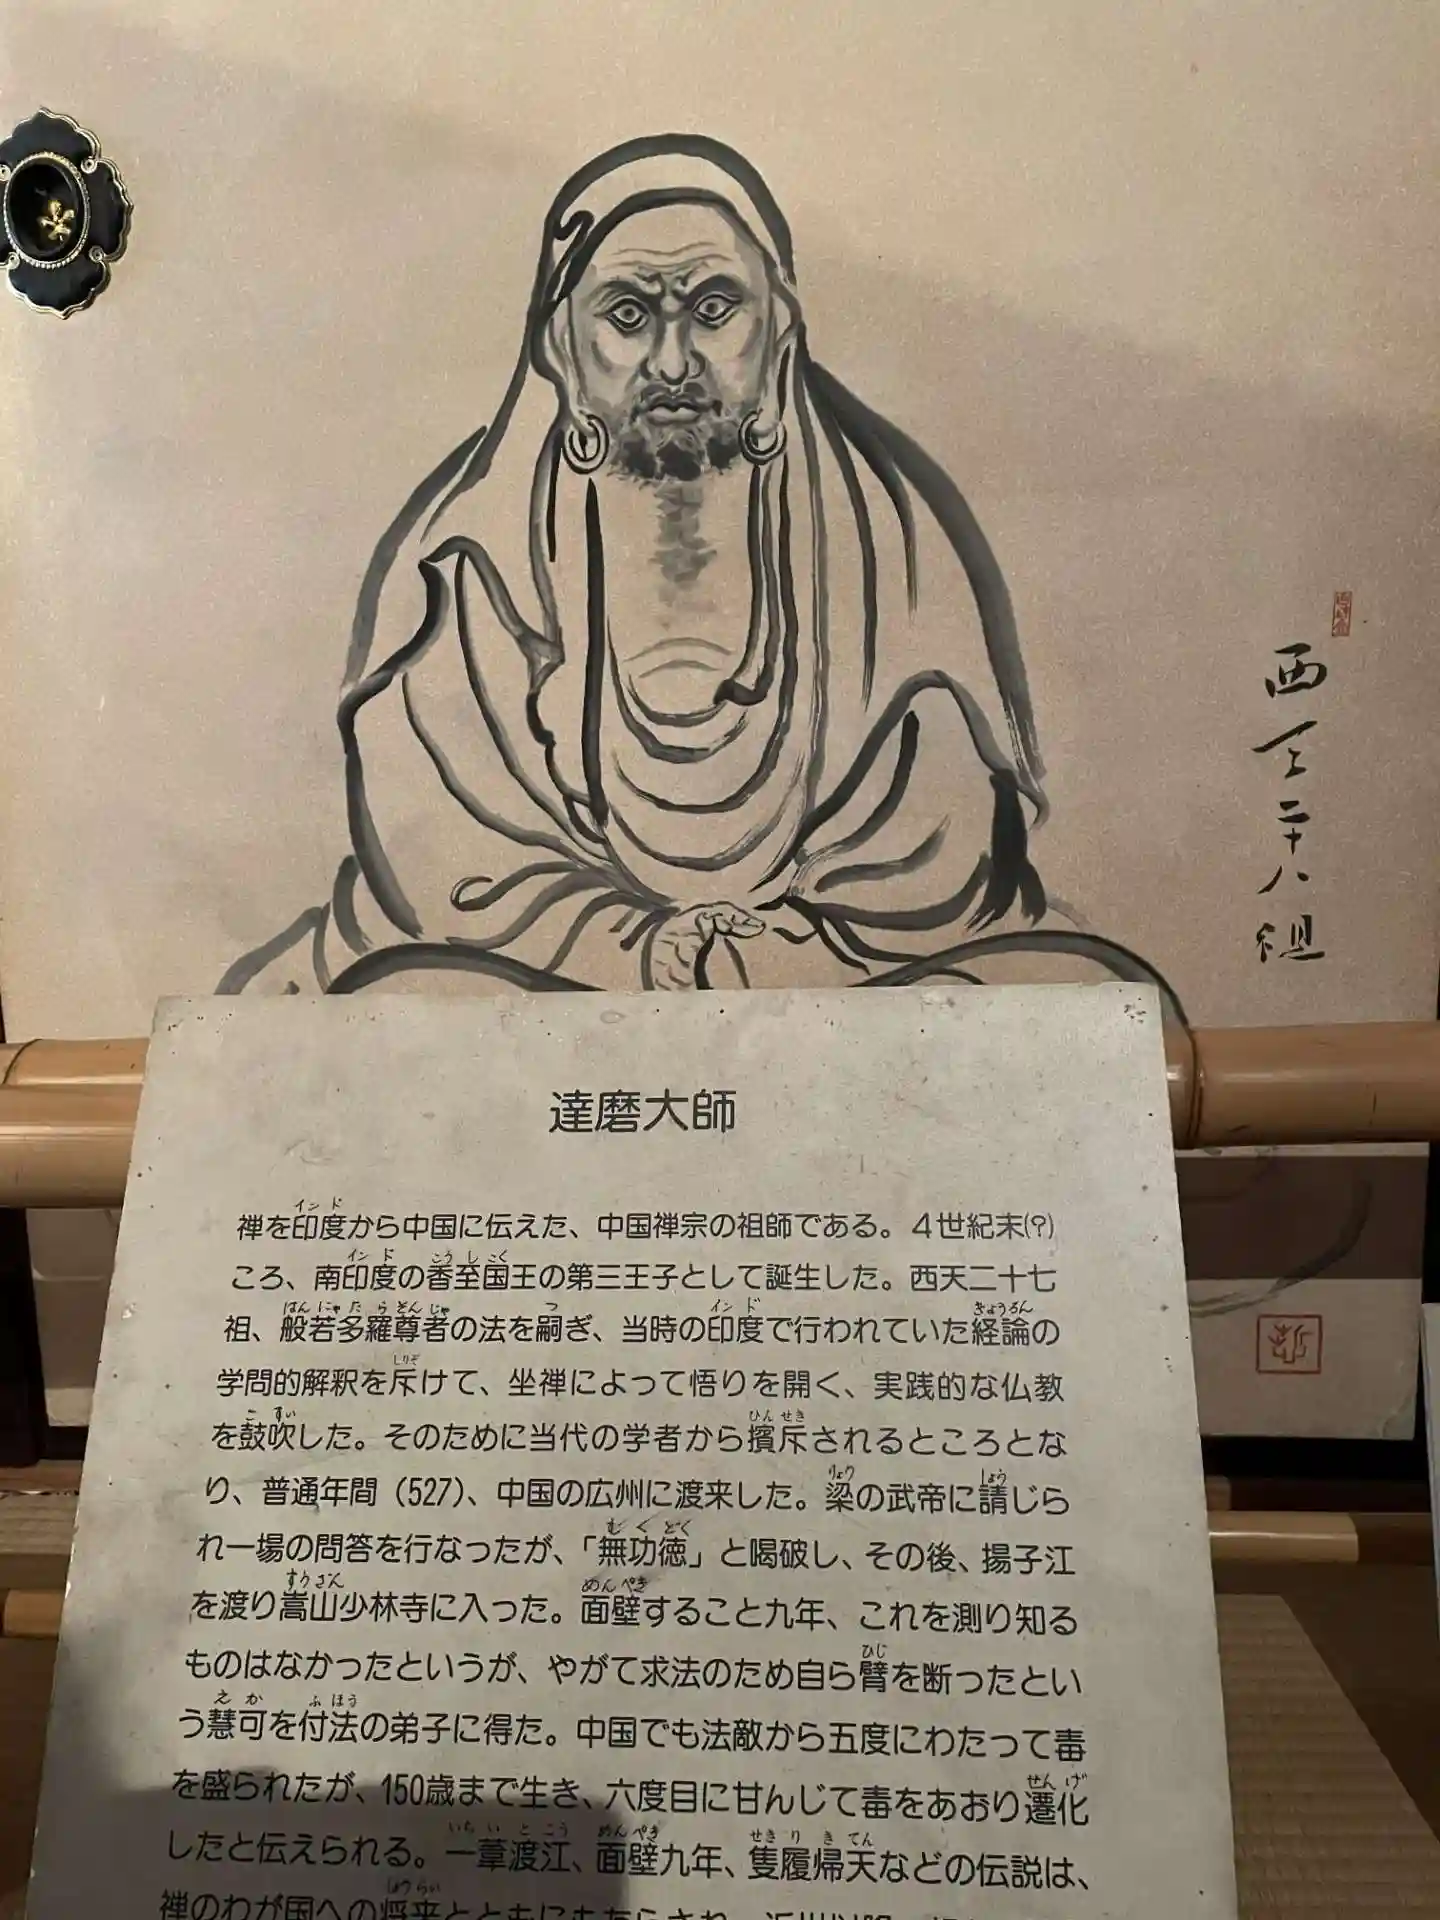 西天二十八祖
達磨大師
禅を印度から中国に伝えた、中国禅宗の祖師である。4世紀末(?)
ころ、南印度の香至国王の第三王子として誕生した。西天二十七
祖、般若多羅尊者の法を嗣ぎ、当時の印度で行われていた経論の
学問的解釈を斥けて、坐禅によって悟りを開く、実践的な仏教
を鼓吹した。そのために当代の学者から擯斥されるところとな
り、普通年間(527)、中国の広州に渡来した。梁の武帝に請じら
れ一場の問答を行なったが、「無功徳」と喝破し、その後、揚子江
を渡り嵩山少林寺に入った。面壁すること九年、これを測り知る
ものはなかったというが、やがて求法のため自ら臂を断ったとい
う慧可を付法の弟子に得た。中国でも法敵から五度にわたって毒
を盛られたが、150歳まで生き、六度目に甘んじて毒をあおり遷化
したと伝えられる。一葦渡江、面壁九年、隻履帰天などの伝説は、
禅のわが国への将来とともにもたらされ、